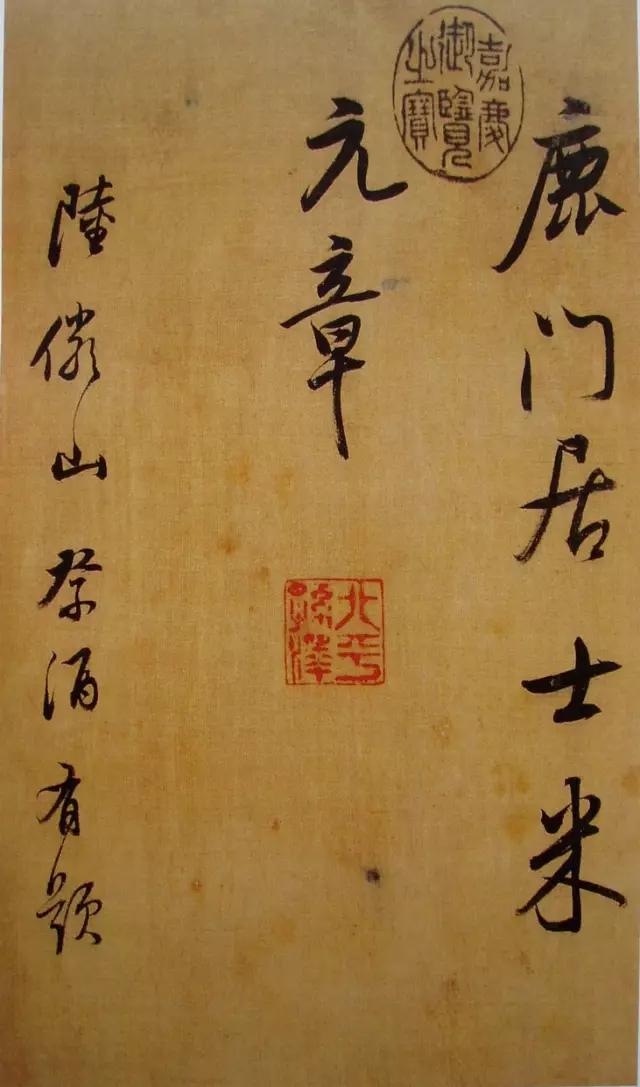 鹿门居士米
嘉慶
御覽
之寶
元章
北平
孫澤
陸儼山祭酒有題